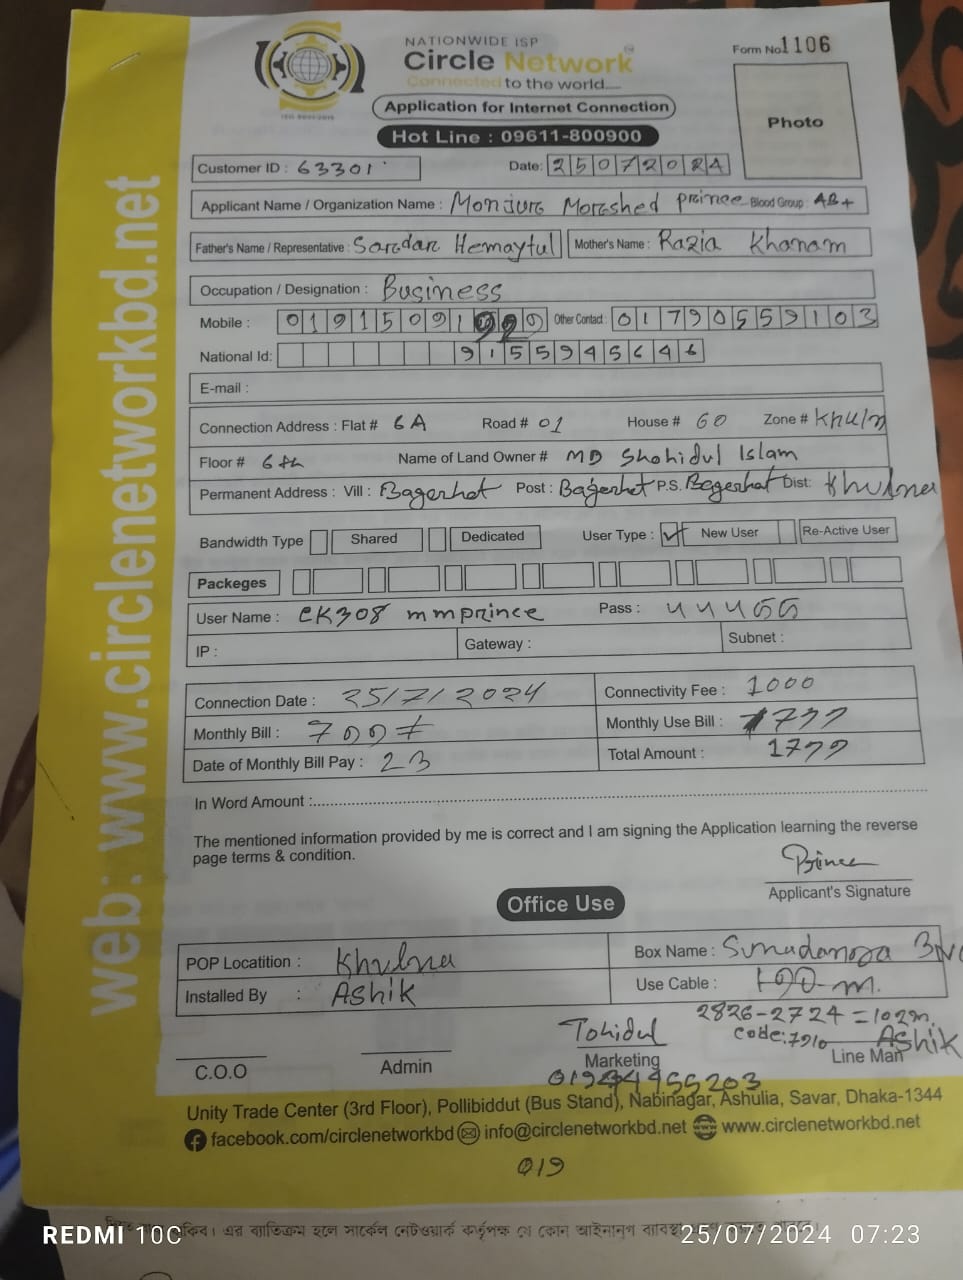 NATIONWIDE ISP
Circle Network
Connected to the world....
Form No. 1106
Application for Internet Connection
Hot Line : 09611-800900
Photo
Customer ID : 63301
Date: 25072024
Applicant Name / Organization Name : Monjure Moreshed prince Blood Group : AB+
Father's Name / Representative : Sardar Hemaytul Mother's Name : Razia Khanam
Occupation / Designation : Business
Mobile : 01915091 Other Contact : 01790559103
National Id: 9155945646
E-mail :
Connection Address : Flat # 6A Road # 01 House # 60 Zone # Khuln
Floor # 6th Name of Land Owner # MD Shohidul Islam
Permanent Address : Vill : Bagerhat Post : Bagerhat P.S. Bagerhat Dist: Khulna
Bandwidth Type Shared Dedicated User Type : New User Re-Active User
Packeges
User Name : CK308 mmprince Pass :
IP : Gateway : Subnet :
Connection Date : 25/7/2024 Connectivity Fee : 1000
Monthly Bill : Monthly Use Bill :
Date of Monthly Bill Pay : 23 Total Amount :
In Word Amount :
The mentioned information provided by me is correct and I am signing the Application learning the reverse
page terms & condition.
Prince
Applicant's Signature
Office Use
POP Locatition : Khulna Box Name :
Installed By : Ashik Use Cable : m.
2826-2724=102m.
Tohidul code:7910 Ashik
C.O.O Admin Marketing Line Man
Unity Trade Center (3rd Floor), Pollibiddut (Bus Stand), Nabinagar, Ashulia, Savar, Dhaka-1344
facebook.com/circlenetworkbd info@circlenetworkbd.net www.circlenetworkbd.net
019
web: www.circlenetworkbd.net
REDMI 10C 25/07/2024 07:23